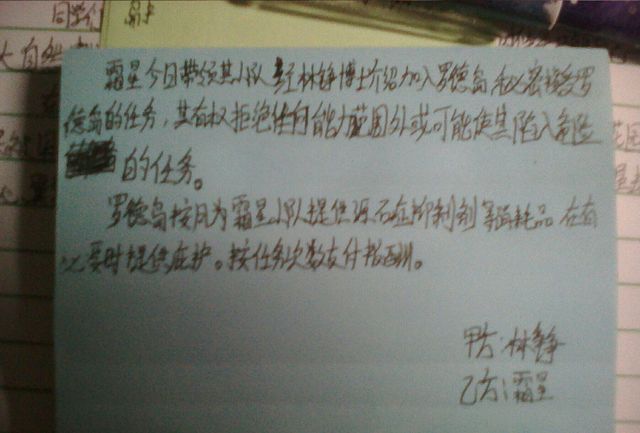 霜星今日带领其小队经林铮博士介绍加入罗德岛 秘密接受罗
德岛的任务,其有权拒绝任何能力范围外或可能使其陷入危险
的任务。
罗德岛按月为霜星小队提供源石症抑制剂等消耗品 在有
必要时提供庇护。按任务次数支付报酬。
甲方:林铮
乙方:霜星